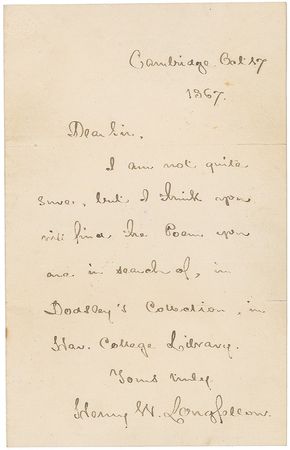 Cambridge Oct 17
1867.
Dear Sir,
I am not quite
sure, but I think you
will find the Poem you
are in search of, in
Dodsley's Collection, in
Har. College Library.
Yours truly
Henry W. Longfellow.